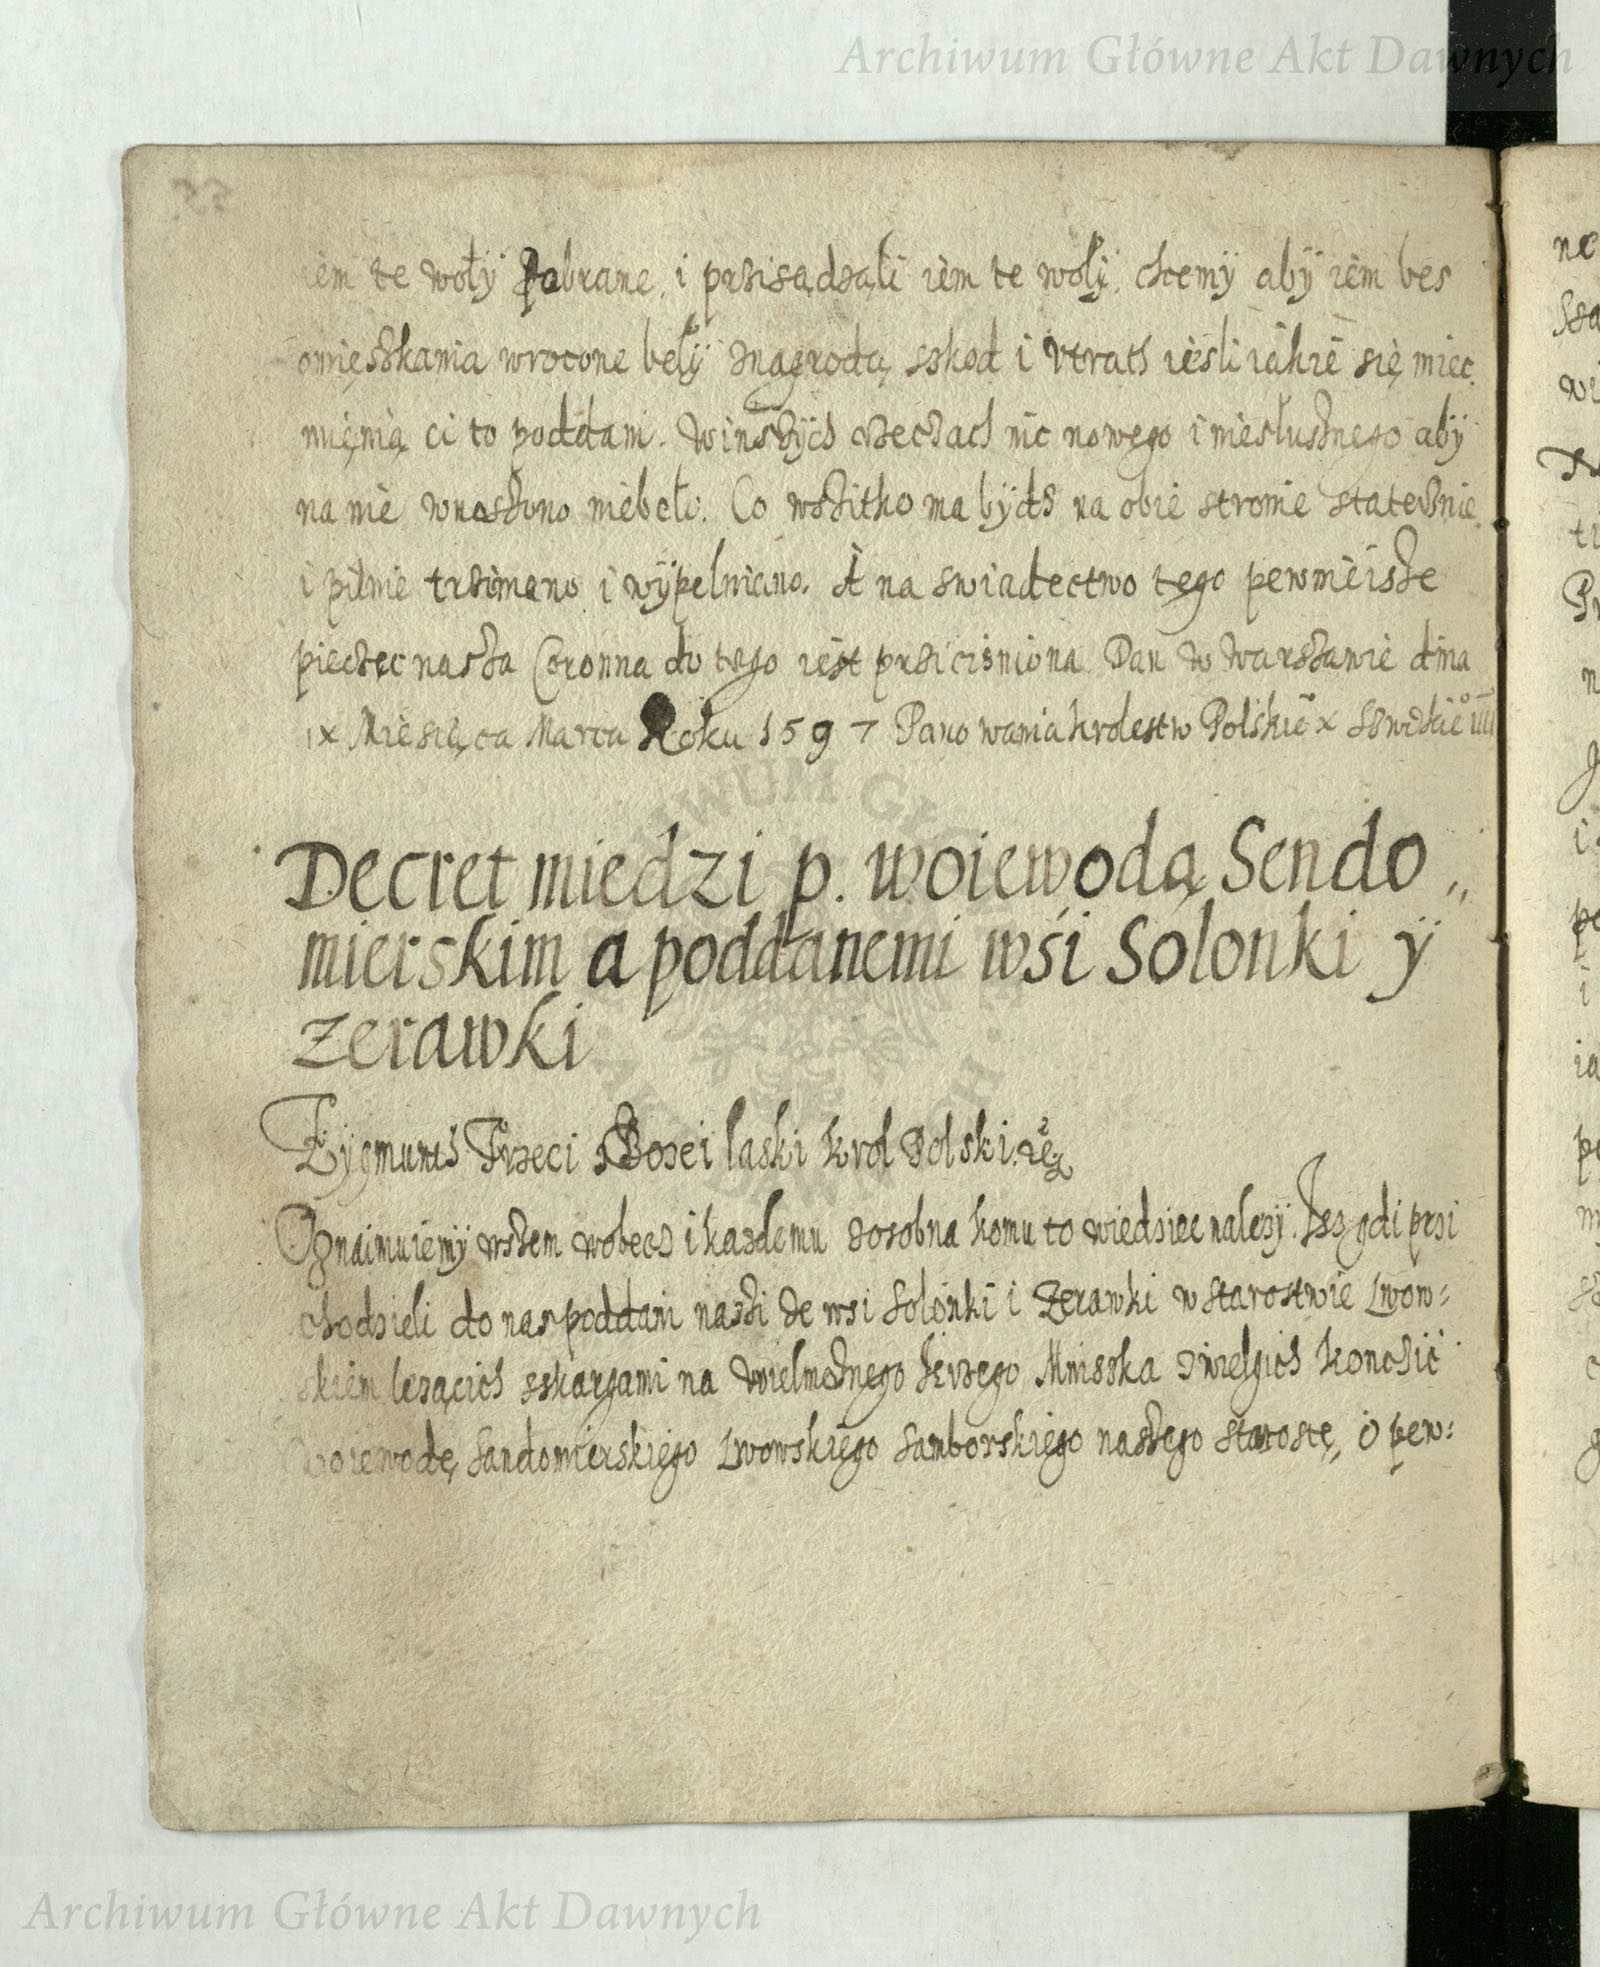 Archiwum Główne Akt Dawnych
iem te woły Pabrane, i przisądzali iem te woły, chcemy aby iem bes
omięszkania wrocone beły znagrodą szkod i vtrath iesli iakie się miec
mięnią ci to poddani. Winszych rzeczach nic nowego i niesłusznego aby
na nie wnaszono niebeło. Co wszitko ma bydz na obie stronie statecznie
i pilnie trzimano i wypelniano. A na swiadectwo tego pewnieisze
pieczęc nasza Coronna do tego iest prziciśniona Dan w Warszawie dnia
ix Miesiąca Marca Roku 1597 Panowania krolestw Polskie° x Szwedzkie° iiii
Decret miedzi p. woiewodą Sendo„
mierskim a poddanemi wśi Solonki ÿ
Zerawki
Zygmunth Trzeci z Bozei laski krol Polski etc
Oznaimuiemy wszem wobecz i kazdemu zosobna komu to wiedziec nalezy. Jsz gdi przi
chodzieli do nas poddani naszi ze wsi Solonki i Zerawki w starostwie Lwow=
skiem lezącich sskargami na Wielmoznego Jerzego Mnisska z wielgich Konczic
woiewodę Sandomierskiego Lwowskiego Samborskiego naszego starostę, o pew=
Archiwum Główne Akt Dawnych